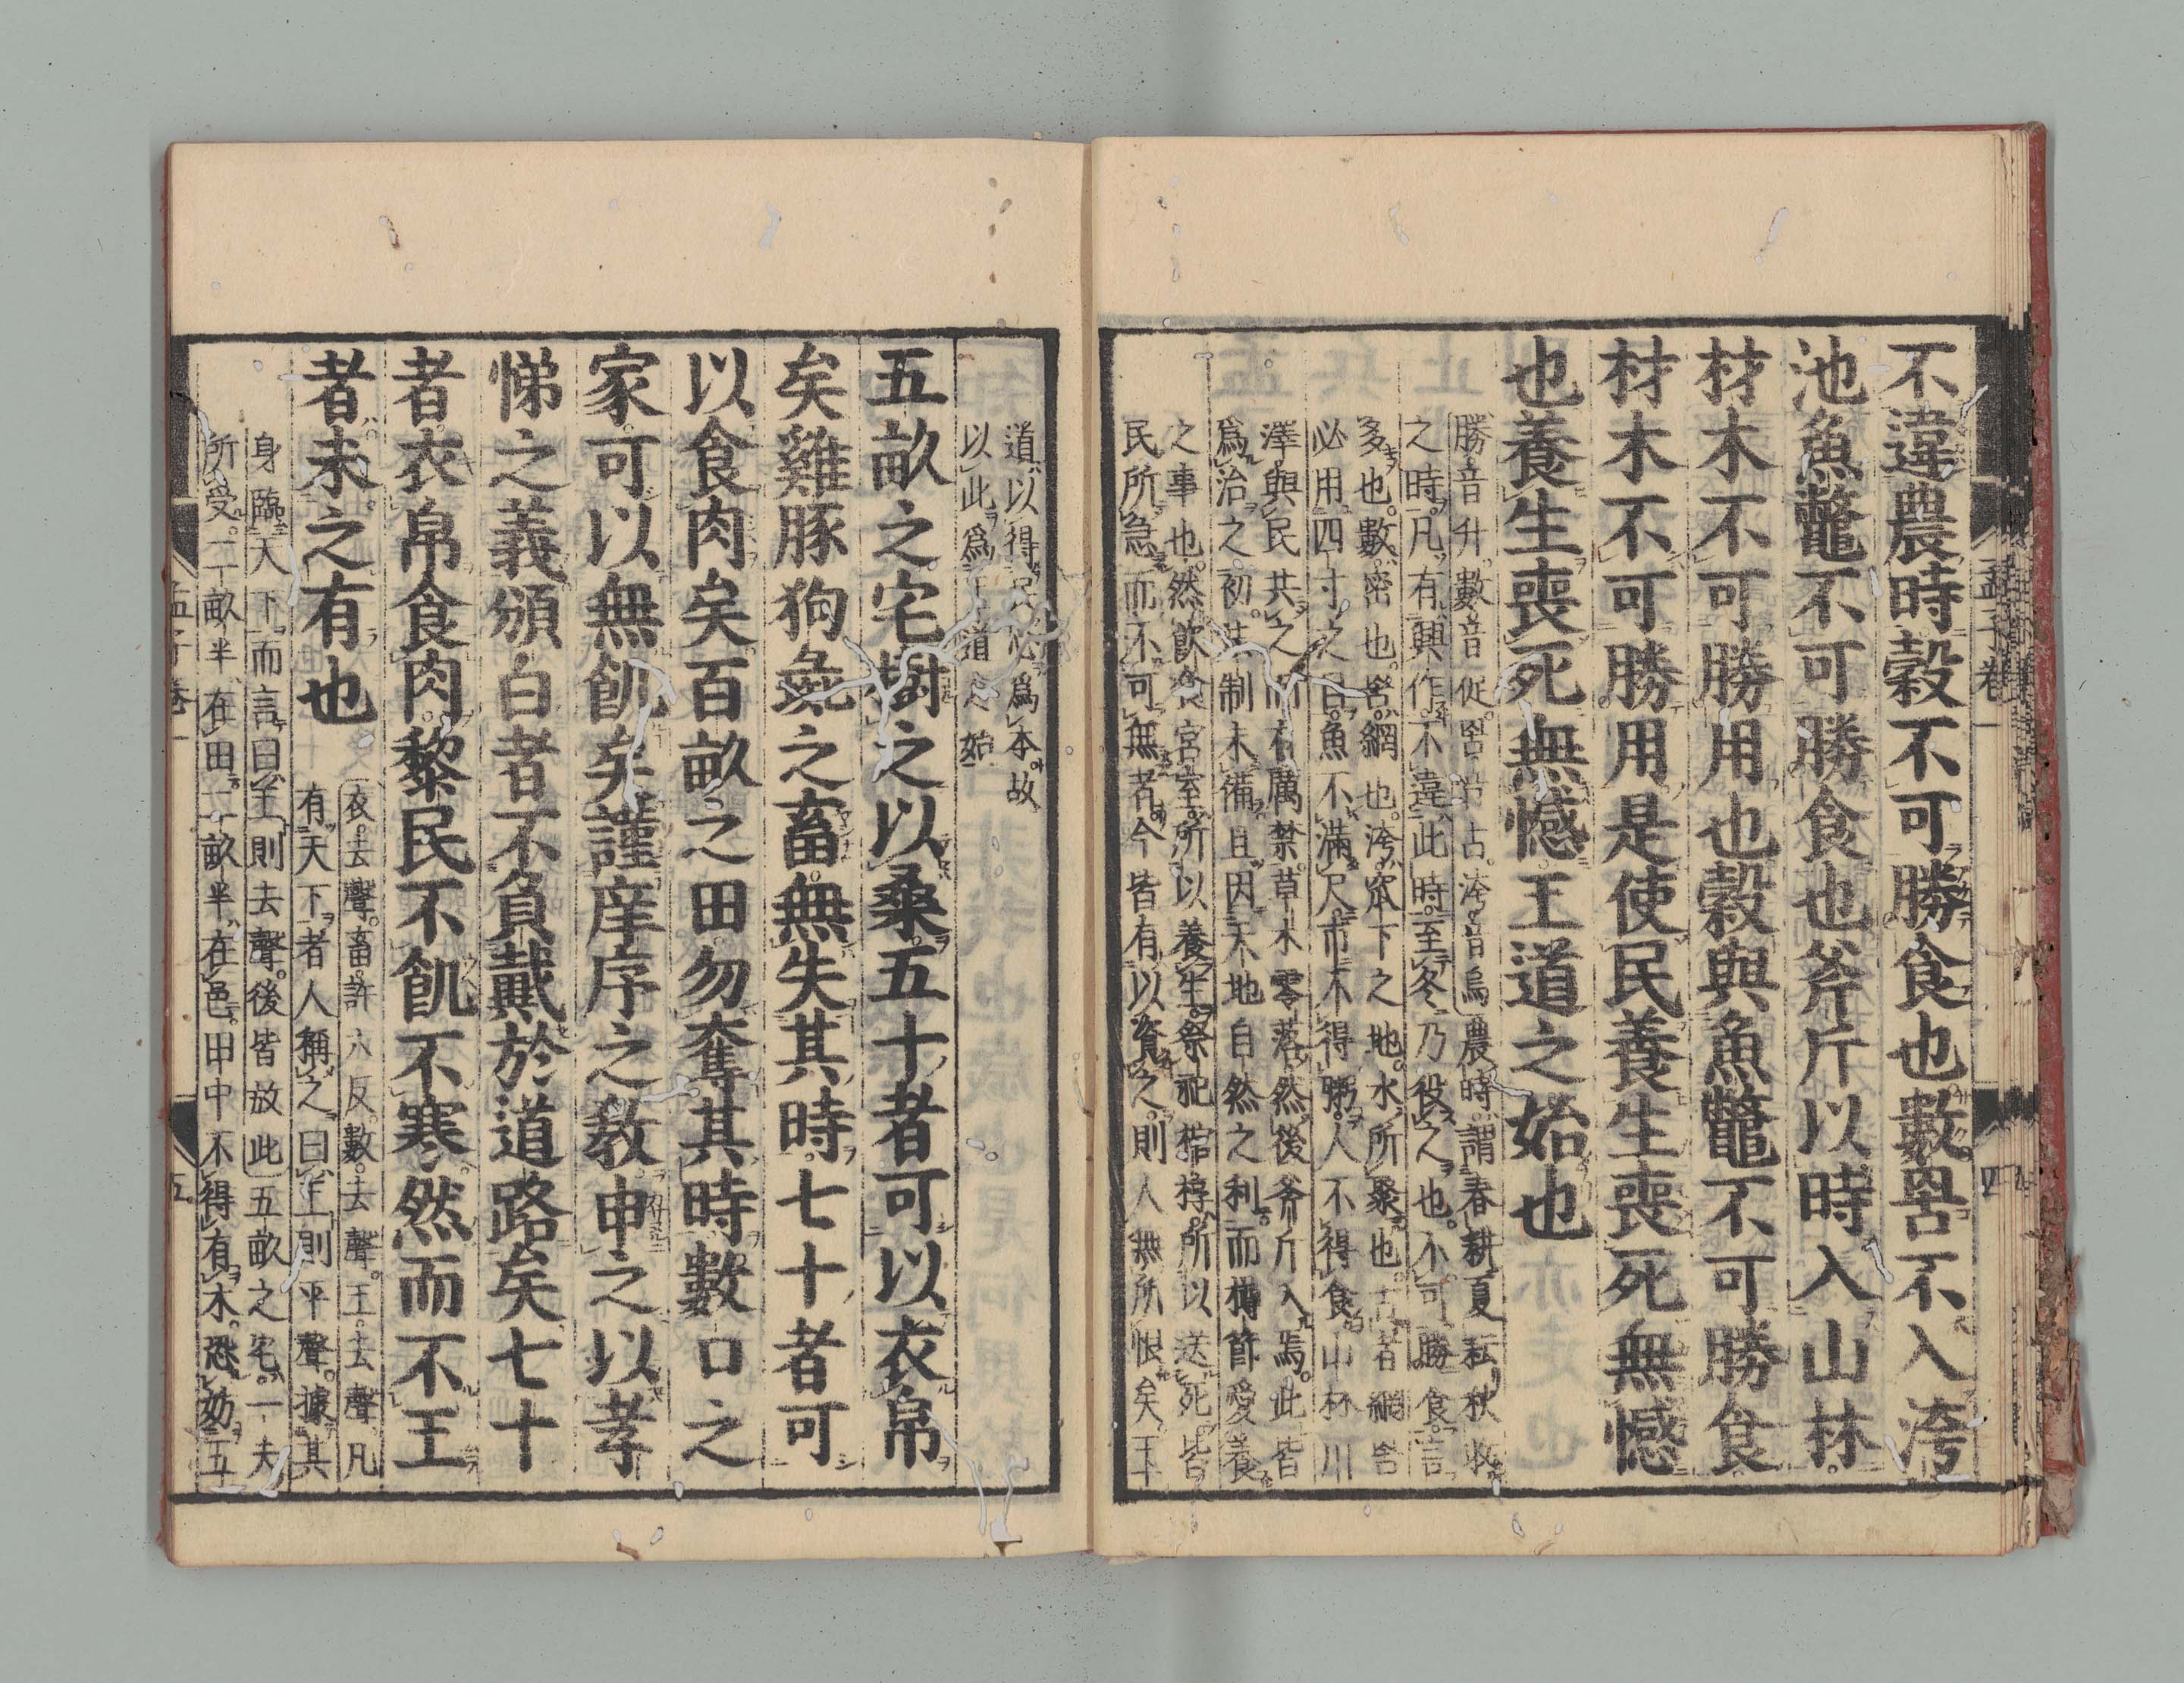 不違農時穀不可勝食也數罟不入洿
池魚鼈不可勝食也斧斤以時入山林
材木不可勝用也穀與魚鼈不可勝食
材木不可勝用是使民養生喪死無憾
也養生喪死無憾王道之始也
勝音升。數音促。罟音古。洿音烏。農時。謂春耕夏耘秋收
之時。凡有興作。不違此時。至冬乃役之也。不可勝食。言
多也。數。密也。罟。網也。洿。窊下之地。水所聚也。古者網罟
必用四寸之目。魚不滿尺。市不得粥。人不得食。山林川
澤。與民共之。而有厲禁。草木零落。然後斧斤入焉。此皆
爲治之初。法制未備。且因天地自然之利。而撙節愛養
之事也。然飲食宮室。所以養生。祭祀棺槨。所以送死。皆
民所急而不可無者。今皆有以資之。則人無所恨矣。王
道以得民心爲本。故
以此爲王道之始
五畝之宅樹之以桑五十者可以衣帛
矣雞豚狗彘之畜無失其時七十者可
以食肉矣百畝之田勿奪其時數口之
家可以無飢矣謹庠序之敎申之以孝
悌之義頒白者不負戴於道路矣七十
者衣帛食肉黎民不飢不寒然而不王
者未之有也
衣。去聲。畜。許六反。數。去聲。王。去聲。凡
有天下者。人稱之曰王。則平聲。據其
身臨天下而言曰王。則去聲。後皆放此五畝之宅。一夫
所受。二畝半在田。二畝半在邑。田中不得有木。恐妨五
孟子卷一
四
孟子卷一
五